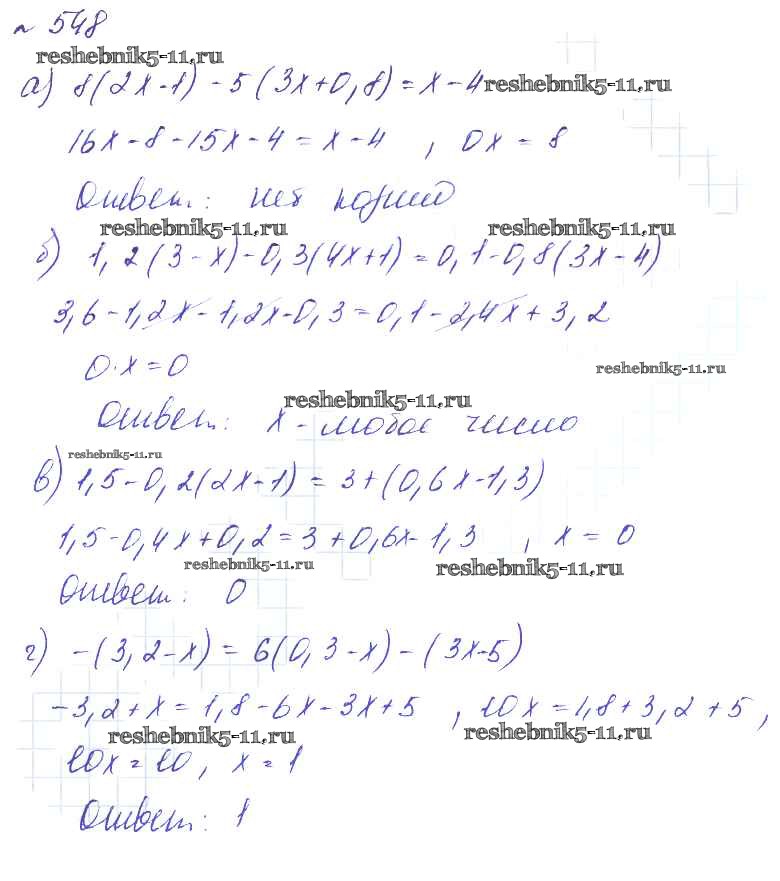 № 548
reshebnik5-11.ru
а) 8(2x-1)-5(3x+0,8)=x-4 reshebnik5-11.ru
16x-8-15x-4=x-4 , 0x=8
Ответ: нет корней
reshebnik5-11.ru reshebnik5-11.ru
б) 1,2(3-x)-0,3(4x+1)=0,1-0,8(3x-4)
3,6-1,2x-1,2x-0,3=0,1-2,4x+3,2
0·x=0 reshebnik5-11.ru
reshebnik5-11.ru
Ответ: x - любое число
reshebnik5-11.ru
в) 1,5-0,2(2x-1)=3+(0,6x-1,3)
1,5-0,4x+0,2=3+0,6x-1,3 , x=0
reshebnik5-11.ru reshebnik5-11.ru
Ответ: 0
г) -(3,2-x)=6(0,3-x)-(3x-5)
-3,2+x=1,8-6x-3x+5 , 10x=1,8+3,2+5,
reshebnik5-11.ru reshebnik5-11.ru
10x=10, x=1
Ответ: 1